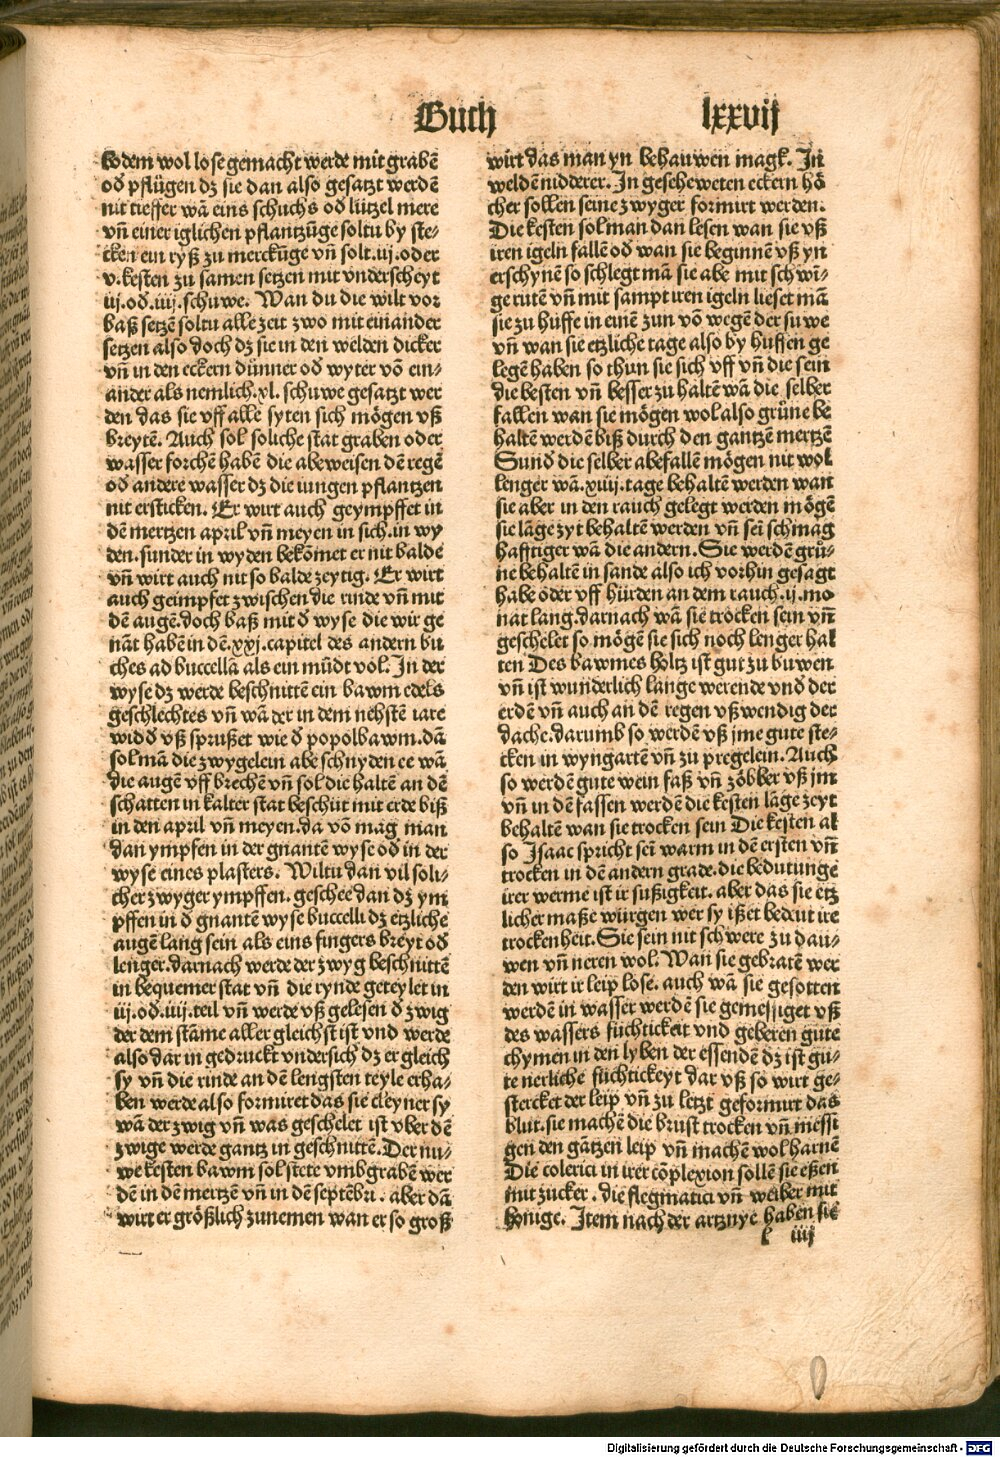 Buch lxxvij
bodem wol lose gemacht werde mit grabē
od̄ pflügen dz sie dan also gesatzt werdē
nit tieffer wā eins schuchs od̄ lützel mere
vñ einer iglichen pflantzūge soltu by ste⸗
cken ein ryß zu merckūge vñ solt .iij. oder
v. kesten zu samen setzen mit vnderscheyt
iij. od̄. iiij. schuwe. Wan du die wilt vor
baß setzē soltu alle zeit zwo mit einander
setzen also doch dz sie in den welden dicker
vñ in den eckern dünner od̄ wyter vō ein⸗
ander als nemlich .xl. schuwe gesatzt wer
den das sie vff alle syten sich mögen vß
breytē. Auch sol soliche stat graben oder
wasser forchē habē die abeweisen dē regē
od̄ andere wasser dz die iungen pflantzen
nit ersticken. Er wirt auch geympffet in
dē mertzen april vñ meyen in sich. in wy
den. sunder in wyden bekōmet er nit balde
vñ wirt auch nit so balde zeytig. Er wirt
auch geimpfet zwischen die rinde vñ mit
dē augē. doch baß mit d̄ wyse die wir ge
nāt habē in dē .xxj. capitel des andern bu
ches ad buccellā als ein mūdt vol. In der
wyse dz werde beschnittē ein bawm edels
geschlechtes vñ wā der in dem nehstē iare
wid̄ vß sprußet wie d̄ popolbawm. dā
sol mā die zwygelein abe schnyden ee wā
die augē vff brechē vñ sol die haltē an dē
schatten in kalter stat beschüt mit erde biß
in den april vñ meyen. da vō mag man
dan ympfen in der gnantē wyse od̄ in der
wyse eines plasters. Wiltu dan vil soli⸗
cher zwyger ympffen. geschee dan dz ym
pffen in d̄ gnantē wyse buccelli dz etzliche
augē lang sein als eins fingers breyt od̄
lenger. darnach werde der zwyg beschnittē
in bequemer stat vñ die rynde geteylet in
iij. od̄. iiij. teil vñ werde vß gelesen d̄ zwig
der dem stāme aller gleichst ist vnd werde
also dar in gedruckt vndersich dz er gleich
sy vñ die rinde an dē lengsten teyle erha⸗
ben werde also formiret das sie cleyner sy
wā der zwig vñ was geschelet ist vber dē
zwige werde gantz in geschnittē. Der nu⸗
we kesten bawm sol stete vmbgrabē wer
dē in dē mertzē vñ in dē septēbri. aber dā
wirt er größlich zunemen wan er so groß
wirt das man yn behauwen magk. In
weldē nidderer. In gescheweten eckern hō
cher sollen seine zwyger formirt werden.
Die kesten sol man dan lesen wan sie vß
iren igeln fallē od̄ wan sie beginnē vß yn
erschynē so schlegt mā sie abe mit schwi⸗
ge rutē vñ mit sampt iren igeln lieset mā
sie zu huffe in einē zun vō wegē der suwe
vñ wan sie etzliche tage also by huffen ge
legē haben so thun sie sich vff vñ die sein
die besten vñ besser zu haltē wā die selber
fallen wan sie mögen wol also grüne be
haltē werdē biß durch den gantzē mertzē
Sund̄ die selber abefallē mögen nit wol
lenger wā .xiiij. tage behaltē werden wan
sie aber in den rauch gelegt werden mögē
sie lāge zyt behaltē werden vñ sei schmag
hafftiger wā die andern. Sie werdē grü⸗
ne behaltē in sande also ich vorhin gesagt
habe oder vff hürden an dem rauch .ij. mo
nat lang. darnach wā sie trocken sein vñ
geschelet so mögē sie sich noch lenger hal
ten Des bawmes holtz ist gut zu buwen
vñ ist wunderlich lange werende vnd̄ der
erdē vñ auch an dē regen vßwendig der
dache. darumb so werdē vß jme gute ste⸗
cken in wyngartē vñ zu pregelein. Auch
so werdē gute wein faß vñ zöbber vß jm
vñ in dē fassen werdē die kesten lāge zeyt
behaltē wan sie trocken sein Die kesten al
so Isaac spricht sei warm in dē ersten vñ
trocken in dē andern grade. die bedutunge
irer werme ist ir sußigkeit. aber das sie etz
licher maße würgen wer sy ißet bedeut ire
trockenheit. Sie sein nit schwere zu dau⸗
wen vñ neren wol. Wan sie gebratē wer
den wirt ir leip lose. auch wā sie gesotten
werdē in wasser werdē sie gemessiget vß
des wassers füchtickeit vnd geberen gute
chymen in den lyben der essendē dz ist gü⸗
te nerliche füchtickeyt dar vß so wirt ge⸗
stercket der leip vñ zu letzt geformirt das
blut. sie machē die brust trocken vñ messi
gen den gātzen leip vñ machē wol harnē
Die colerici in irer cōplexion sollē sie eßen
mit zucker. die flegmatici vñ weiber mit
honige. Item nach der artznye haben sie
l iiij
Digitalisierung gefördert durch die Deutsche Forschungsgemeinschaft - DFG